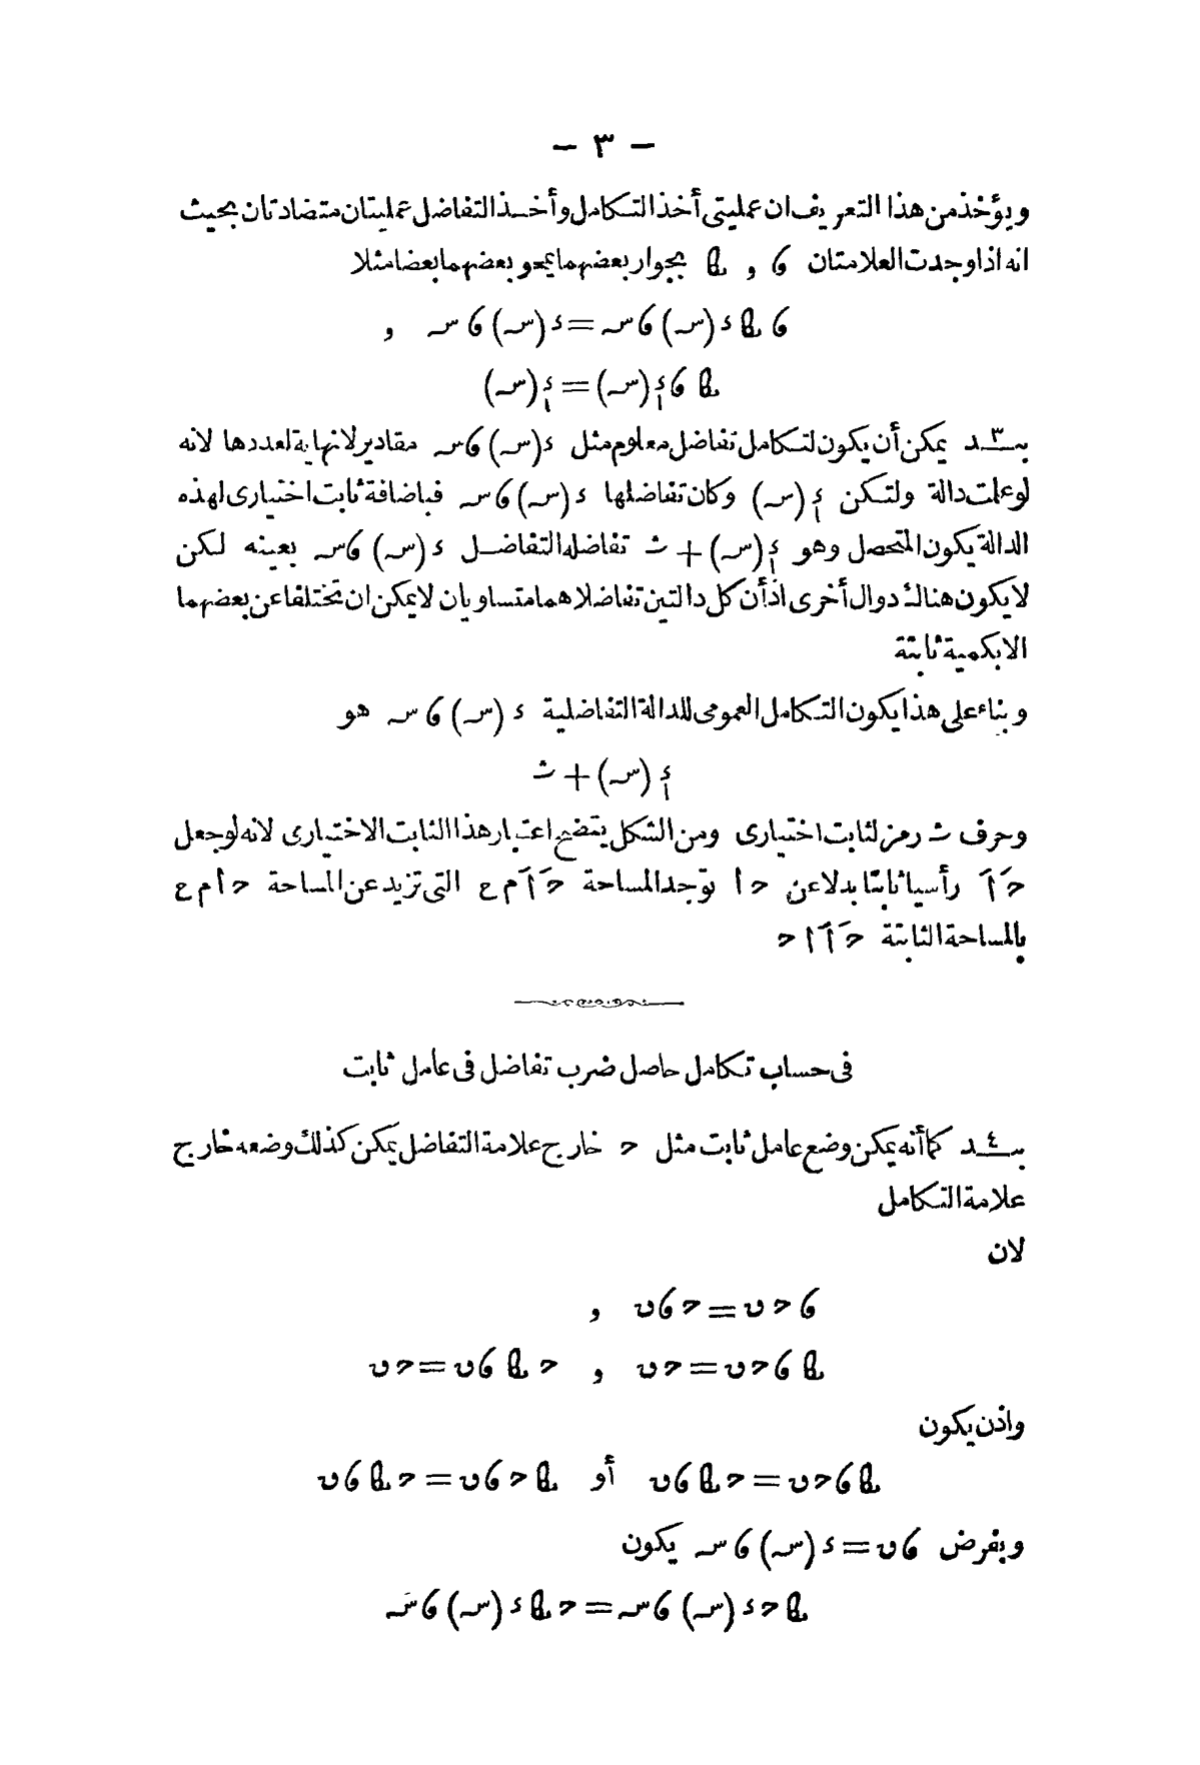 — ٣ —
ويؤخذ من هذا التعريف ان عمليتي أخذ التكامل وأخذ التفاضل عمليتان متضادتان بحيث
انه اذا وجدت العلامتان ء و ﻬﺎ بجوار بعضهما يمحو بعضهما بعضا مثلا
ء ﻬﺎ د (س) ء س = د (س) ء س و
ﻬﺎ ء دٕ (س) = دٕ (س)
بند ٣ يمكن أن يكون لتكامل تفاضل معلوم مثل د (س) ء س مقادير لانهاية لعددها لانه
لوعلمت دالة ولتكن دٕ (س) وكان تفاضلها د (س) ء س فباضافة ثابت اختيارى لهذه
الدالة يكون المتحصل وهو دٕ (س) + ث تفاضله التفاضل د (س) ء س بعينه لكن
لا يكون هناك دوال أخرى اذ أن كل دالتين تفاضلاهما متساويان لا يمكن ان تختلفا عن بعضهما
الا بكمية ثابتة
وبناء على هذا يكون التكامل العمومى للدالة التفاضلية د (س) ء س هو
دٕ (س) + ث
وحرف ث رمز لثابت اختيارى ومن الشكل يتضح اعتبار هذا الثابت الاختيارى لانه لو جعل
حَ اَ رأسيا ثابتا بدلا عن ح ا توجد المساحة حَ اَ م ع التى تزيد عن المساحة ح ا م ع
بالمساحة الثابتة حَ اَ ا ح
فى حساب تكامل حاصل ضرب تفاضل فى عامل ثابت
بند ٤ كما أنه يمكن وضع عامل ثابت مثل ح خارج علامة التفاضل يمكن كذلك وضعه خارج
علامة التكامل
لان
ء ح ں = ح ء ں و
ﻬﺎ ء ح ں = ح ں و ح ﻬﺎ ء ں = ح ں
واذن يكون
ﻬﺎ ء ح ں = ح ﻬﺎ ء ں أو ﻬﺎ ح ء ں = ح ﻬﺎ ء ں
وبفرض ء ں = د (س) ء س يكون
ﻬﺎ ح د (س) ء س = ح ﻬﺎ د (س) ء س